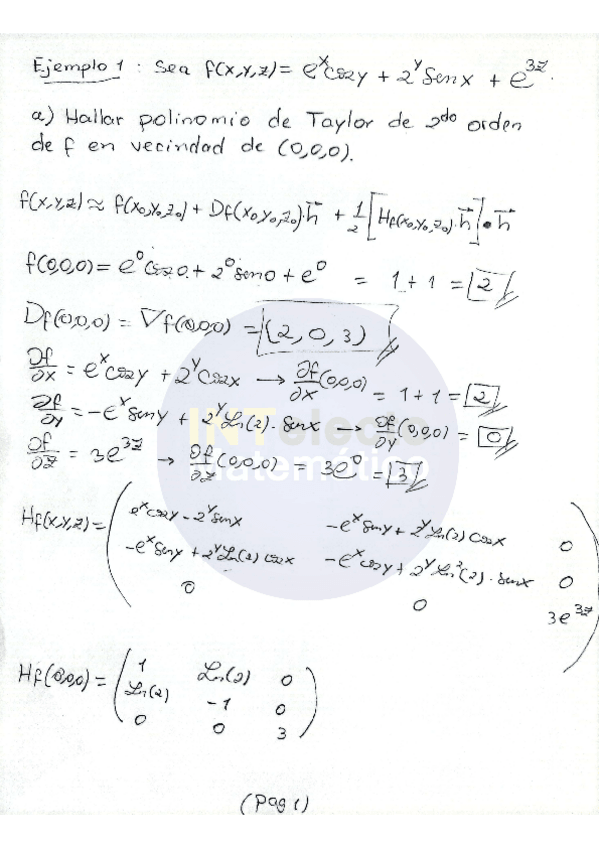 Ejemplo 1 : Sea f(x,y,z) = e^x cos y + 2^y sen x + e^{3z}.
a) Hallar polinomio de Taylor de 2do orden
de f en vecindad de (0,0,0).
f(x,y,z) ≈ f(x₀,y₀,z₀) + Df(x₀,y₀,z₀)·h⃗ + 1/2 [Hf(x₀,y₀,z₀)·h⃗]·h⃗
f(0,0,0) = e^0 cos 0 + 2^0 sen 0 + e^0 = 1 + 1 = 2
Df(0,0,0) = ∇f(0,0,0) = (2, 0, 3)
∂f/∂x = e^x cos y + 2^y cos x → ∂f/∂x (0,0,0) = 1 + 1 = 2
∂f/∂y = -e^x sen y + 2^y Ln(2) · sen x → ∂f/∂y (0,0,0) = 0
∂f/∂z = 3e^{3z} → ∂f/∂z (0,0,0) = 3e^0 = 3
INTelecto
Matemático
Hf(x,y,z) = ( e^x cos y - 2^y sen x   -e^x sen y + 2^y Ln(2) cos x   0
-e^x sen y + 2^y Ln(2) cos x   -e^x cos y + 2^y Ln²(2) · sen x   0
0   0   3e^{3z} )
Hf(0,0,0) = ( 1   Ln(2)   0
Ln(2)   -1   0
0   0   3 )
(Pag 1)